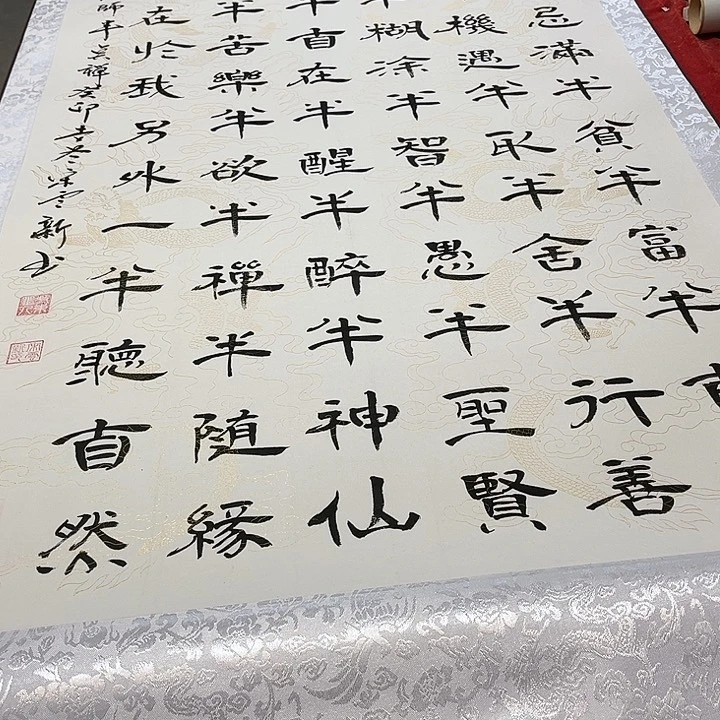 忌滿半貧半富半
機遇半取半舍半行善
糊涂半智半愚半聖賢
半自在半醒半醉半神仙
半苦樂半欲半禪半隨緣
在於我另外一半聽自然
師半禪癸卯吉冬新书